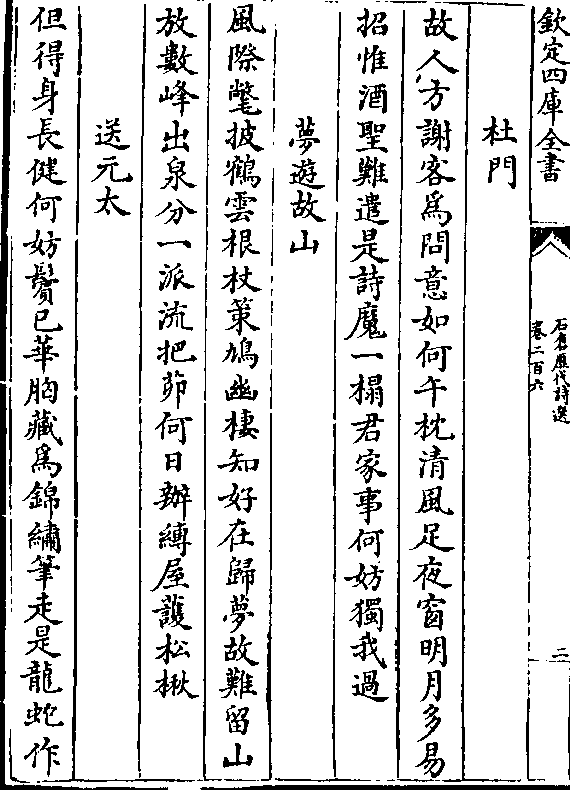 欽定四庫全書
石倉歷代詩選
卷二百六
二
杜門
故人方謝客為問意如何午枕清風足夜窗明月多易
招惟酒聖難遣是詩魔一榻君家事何妨獨我過
夢遊故山
風際氅披鶴雲根杖策鳩幽棲知好在歸夢故難留山
放數峰出泉分一派流把茆何日辦縛屋護松楸
送元太
但得身長健何妨鬢已華胸藏為錦繡筆走是龍蛇作